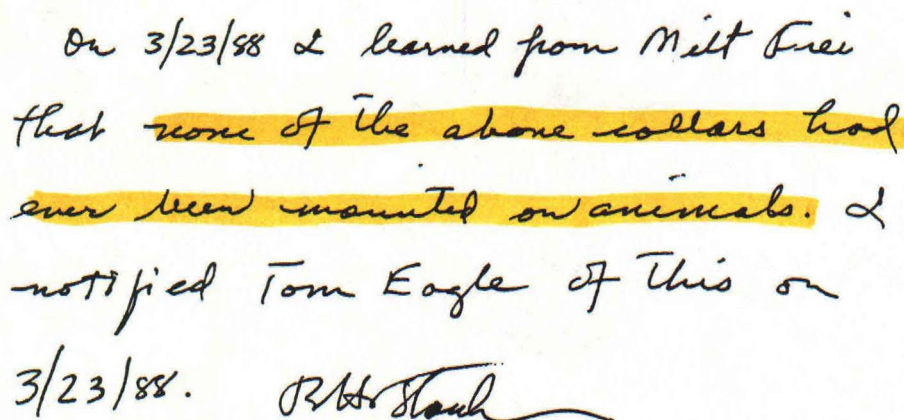 On 3/23/88 I learned from Milt Frei
that none of the above collars had
ever been mounted on animals. I
notified Tom Eagle of this on
3/23/88.